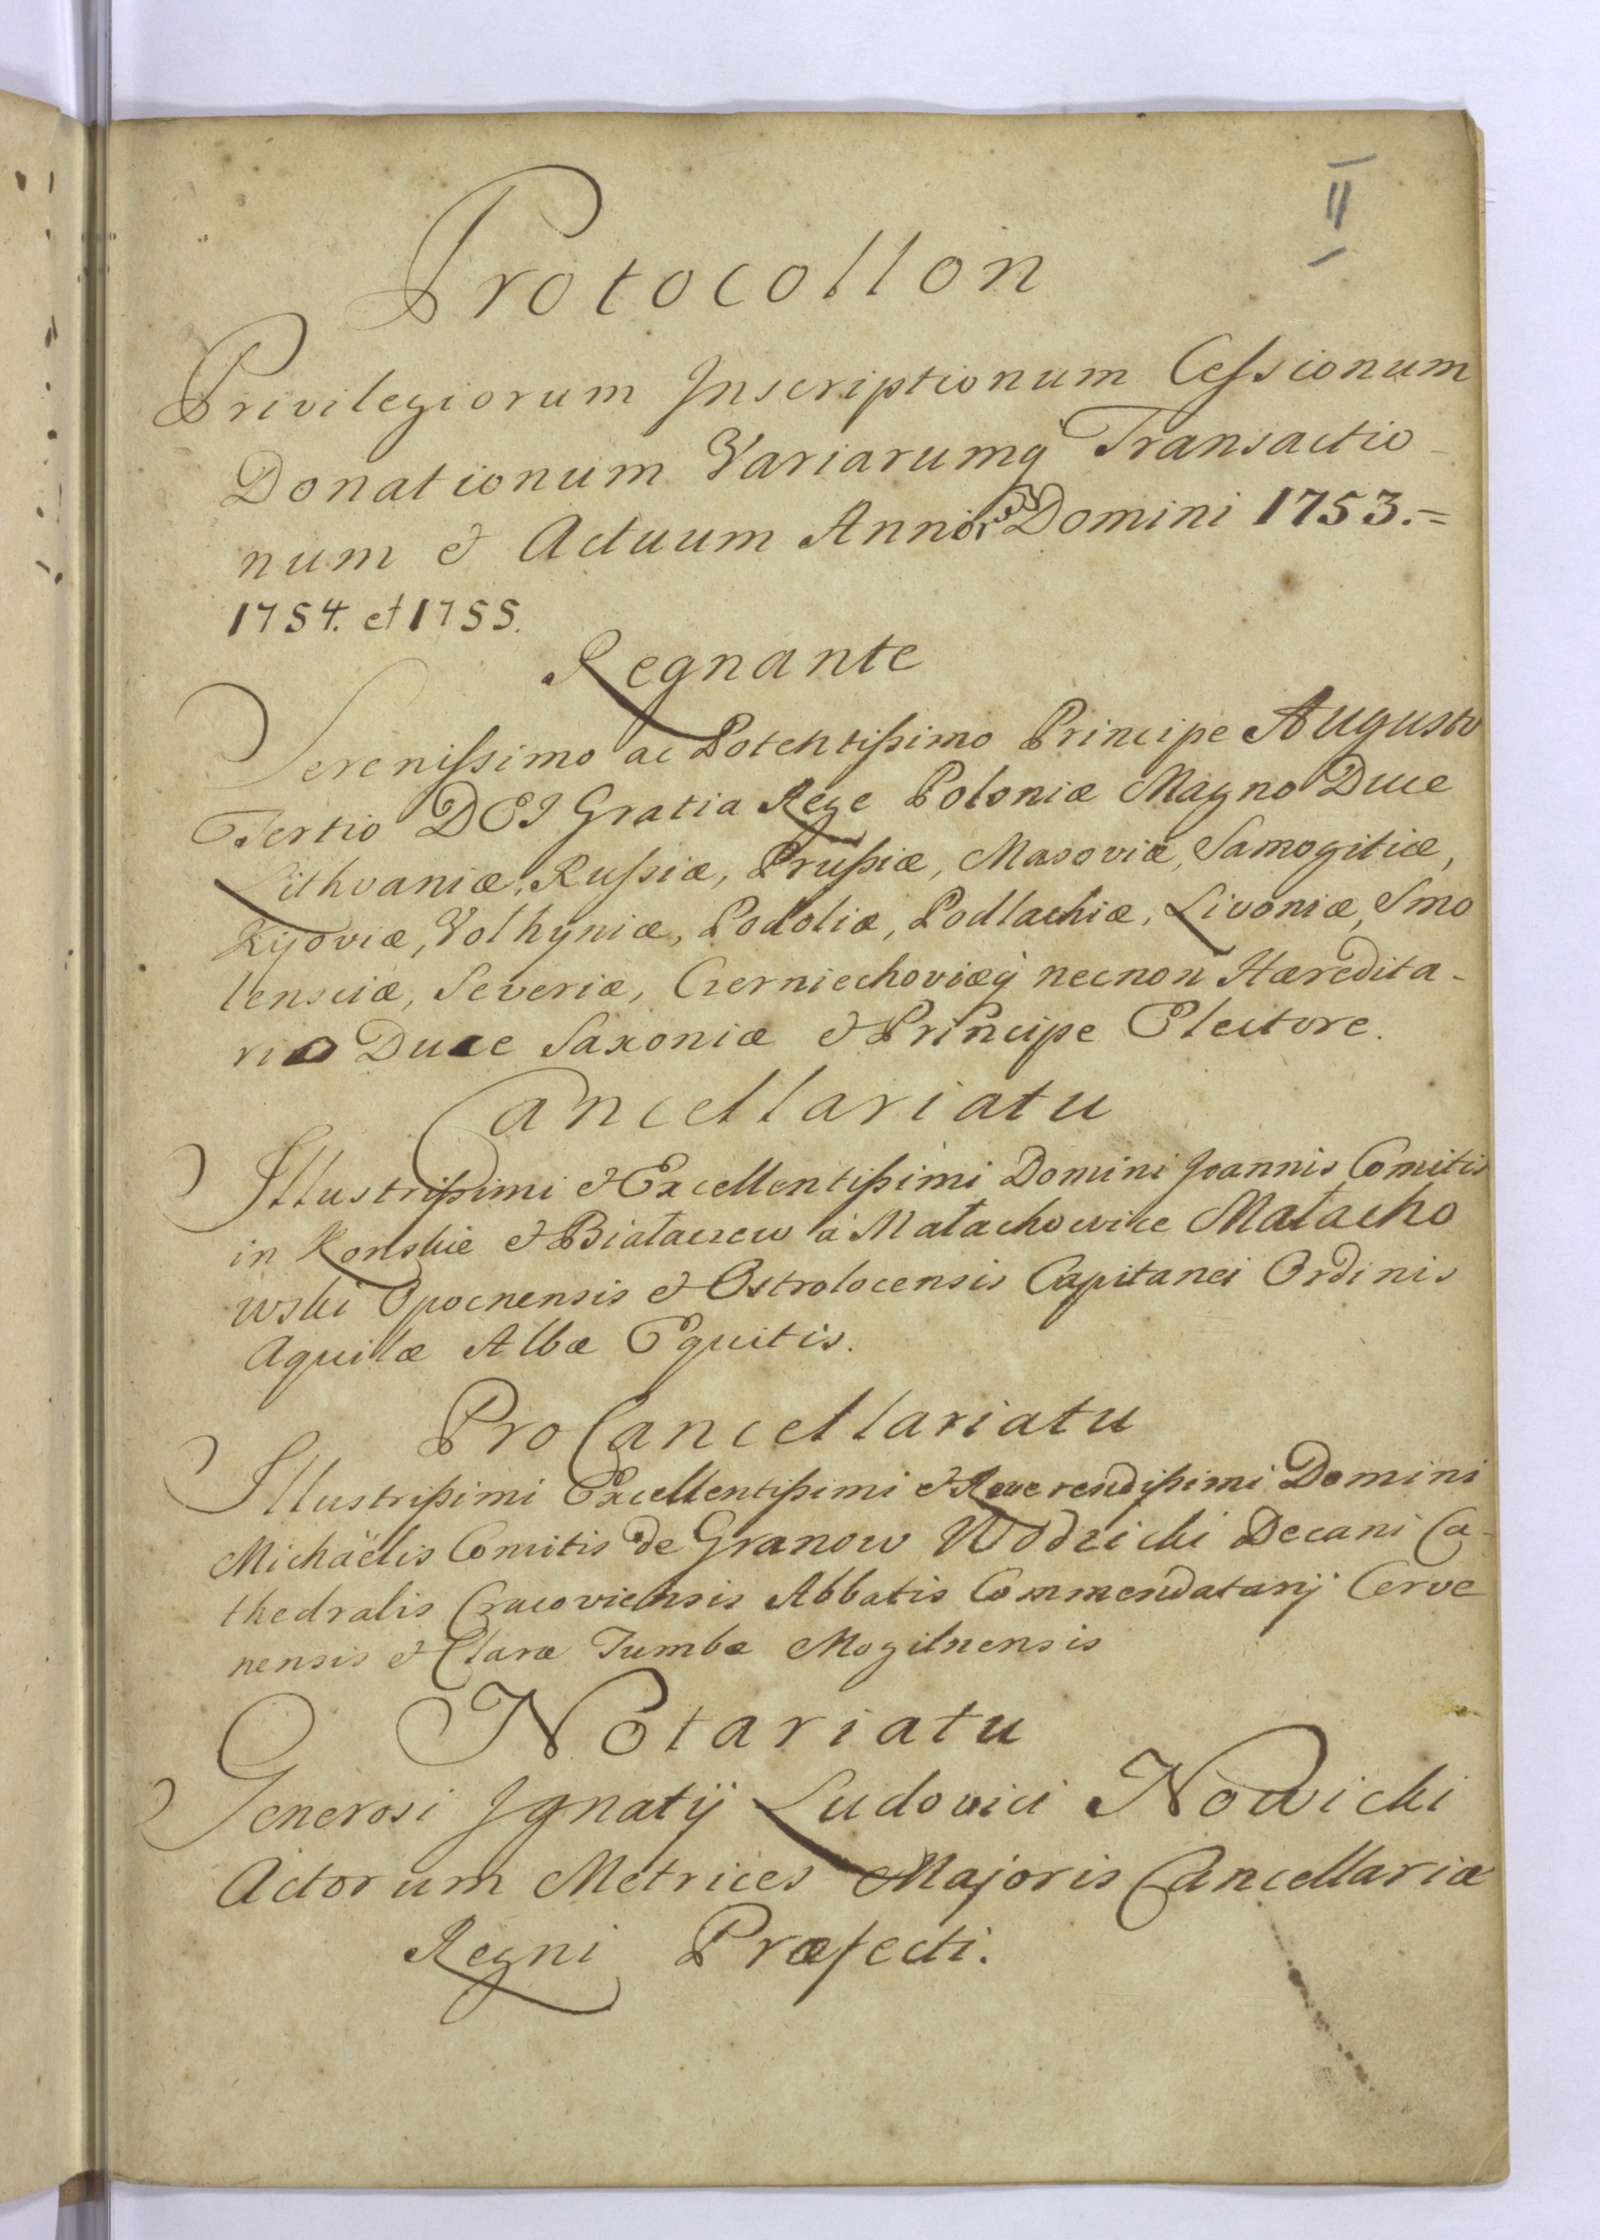 II
Protocollon
Privilegiorum Inscriptionum Cessionum
Donationum Variarumq Transactio
num & Actuum Annor Domini 1753.=
1754. et 1755.
Regnante
Serenissimo ac Potentissimo Principe Augusto
Tertio DEI Gratia Rege Poloniæ Magno Duce
Lithvaniæ, Russiæ, Prussiæ, Masoviæ, Samogitiæ,
Kijoviæ, Volhyniæ, Podoliæ, Podlachiæ, Livoniæ, Smo
lensciæ, Severiæ, Czerniechoviæq necnon Hæredita-
rio Duce Saxoniæ & Principe Electore.
Cancellariatu
Illustrissimi & Excellentissimi Domini Joannis Comitis
in Konskie & Białaczew à Małachowice Małacho
wski Opocnensis & Ostrolocensis Capitanei Ordinis
Aquilæ Albæ Equitis.
ProCancellariatu
Illustrissimi Excellentissimi & Reverendissimi Domini
Michäelis Comitis de Granow Wodzicki Decani Ca-
thedralis Cracoviensis Abbatis Commendatarij Cerve
nensis & Claræ Tumbæ Mogilnensis
Notariatu
Generosi Ignatij Ludovici Nowicki
Actorum Metrices Majoris Cancellariæ
Regni Præfecti.